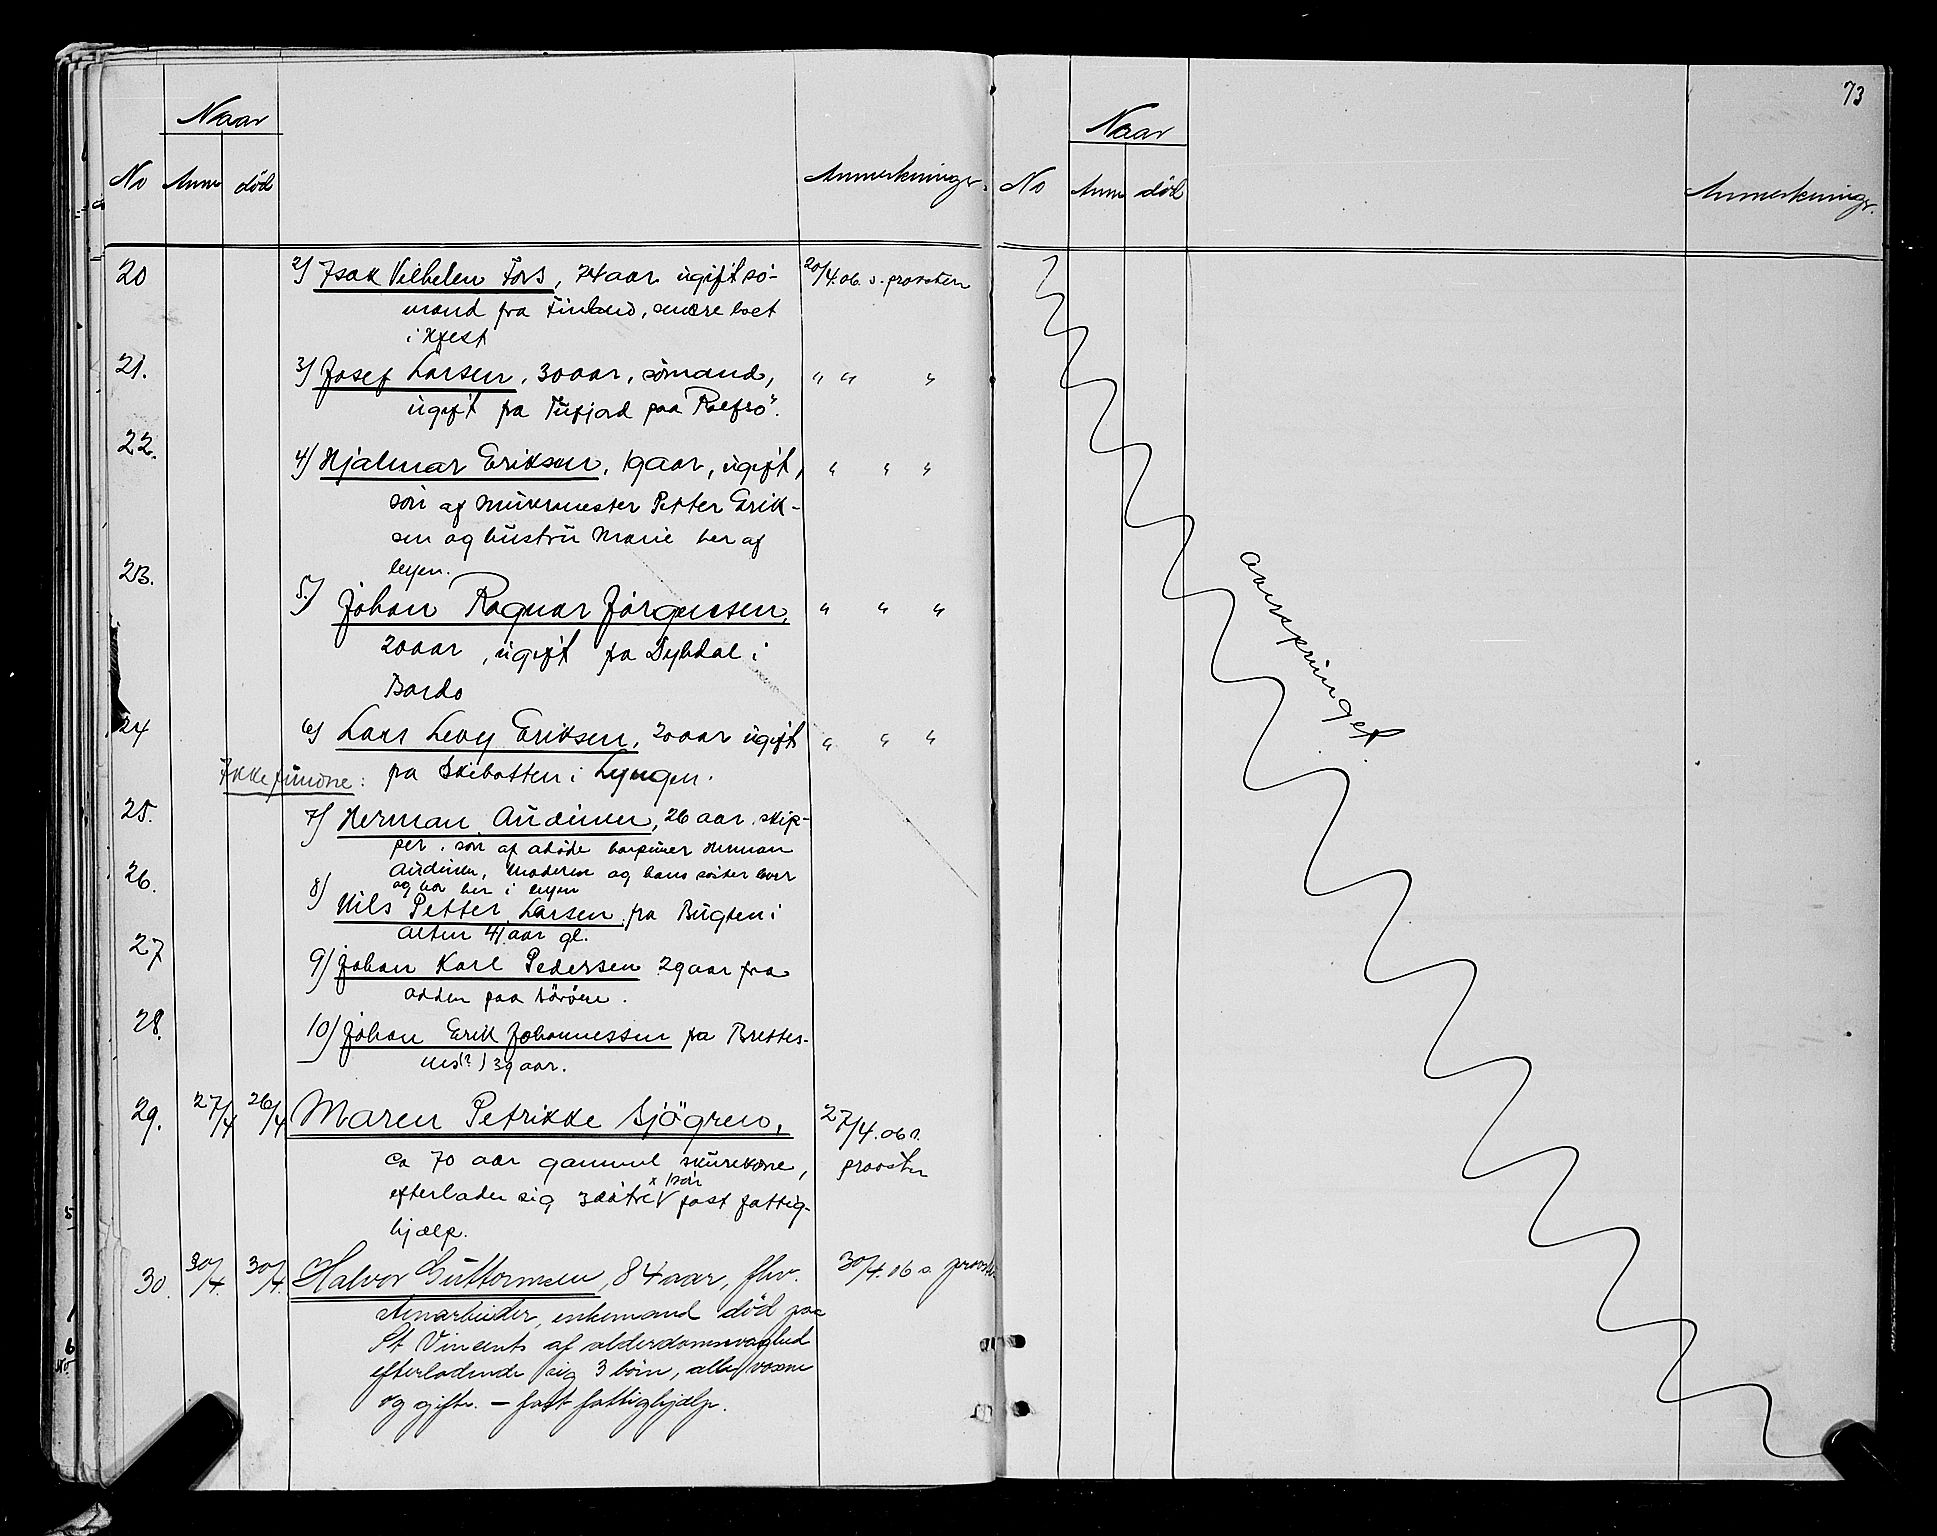 Naar
No Anm død Anmerkninger.
20 2) Isak Vilhelm Fors, 74 aar ugift sø- 20/4.06. s. provsten
mand fra Finland, senere boet
i Hfest
21. 3) Josef Larsen, 30 aar, sømand, " " "
ugift fra Tufjord paa "Rolfsø".
22. 4) Hjalmar Eriksen, 19 aar, ugift, " " "
søn af murermester Petter Erik-
sen og hustru Marie her af
byen.
23. 5) Johan Ragnar Jørgensen, " " "
20 aar, ugift fra Dybdal i
Bardo
24 6) Lars Levy Eriksen, 20 aar ugift " " "
fra Skibotten i Lyngen.
Ikke fundne:
25. 7) Herman Audinen, 26 aar skip-
per, søn af døde harpuner Herman
Audinen, moderen og hans søster lever
og bor her i byen
26. 8) Nils Petter Larsen fra Bugten i
Alten 41 aar gl.
27 9) Johan Karl Pedersen 29 aar fra
Odden paa Sørøen.
28. 10) Johan Erik Johannessen fra Brettes-
nes(?) 39 aar.
29. 27/4 26/4 Maren Petrikke Sjøgren, 27/4.06 s.
provsten
ca 70 aar gammel skurekone,
efterlader sig 3 døtre x 1 søn fast fattig-
hjælp.
30. 30/4. 30/4. Halvor Guttormsen, 84 aar, fhv. 30/4.06 s. provsten
stenarbeider, enkemand død paa
St Vincents af alderdomssvaghed
efterladende sig 3 børn, alle voxne
og gifte. – fast fattighjælp.
73
Naar
No Anm død Anmerkninger.
overspringet.